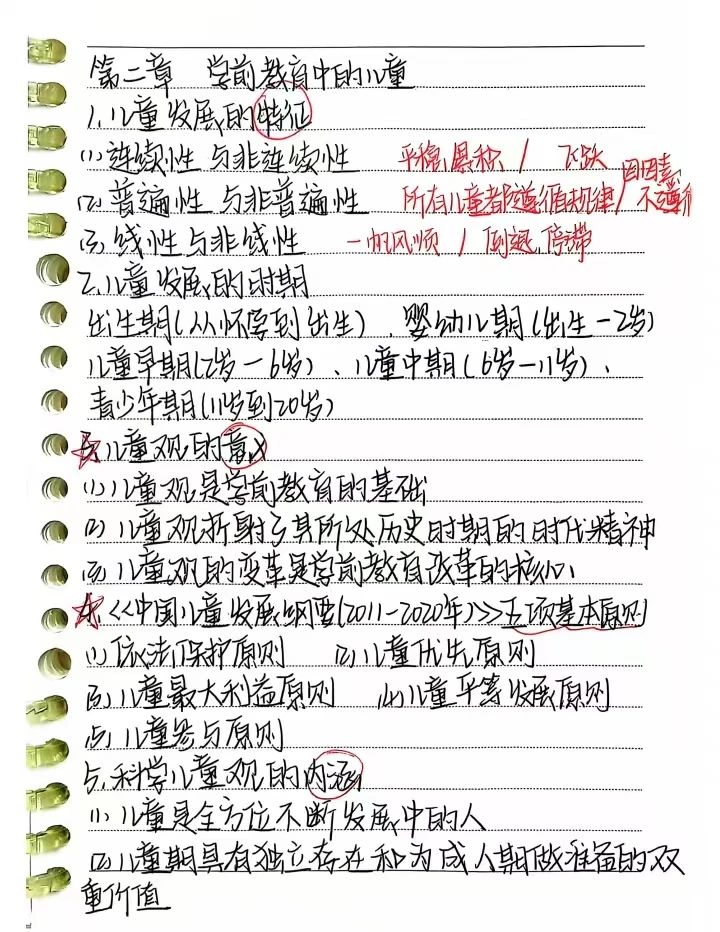 第二章 学前教育中的儿童
1.儿童发展的特征
(1)连续性与非连续性 平稳,累积/飞跃
(2)普遍性与非普遍性 所有儿童都遵循规律/因因素不遵循
(3)线性与非线性 一帆风顺/倒退,停滞
2.儿童发展的时期
出生期(从怀孕到出生)、婴幼儿期(出生-2岁)
儿童早期(2岁-6岁)、儿童中期(6岁-11岁)、
青少年期(11岁到20岁)
3.儿童观的意义
(1)儿童观是学前教育的基础
(2)儿童观折射了其所处历史时期的时代精神
(3)儿童观的变革是学前教育改革的核心
4.<<中国儿童发展纲要(2011-2020年)>>五项基本原则
(1)依法保护原则 (2)儿童优先原则
(3)儿童最大利益原则 (4)儿童平等发展原则
(5)儿童参与原则
5.科学儿童观的内涵
(1)儿童是全方位不断发展中的人
(2)儿童期具有独立存在和为成人期做准备的双
重价值